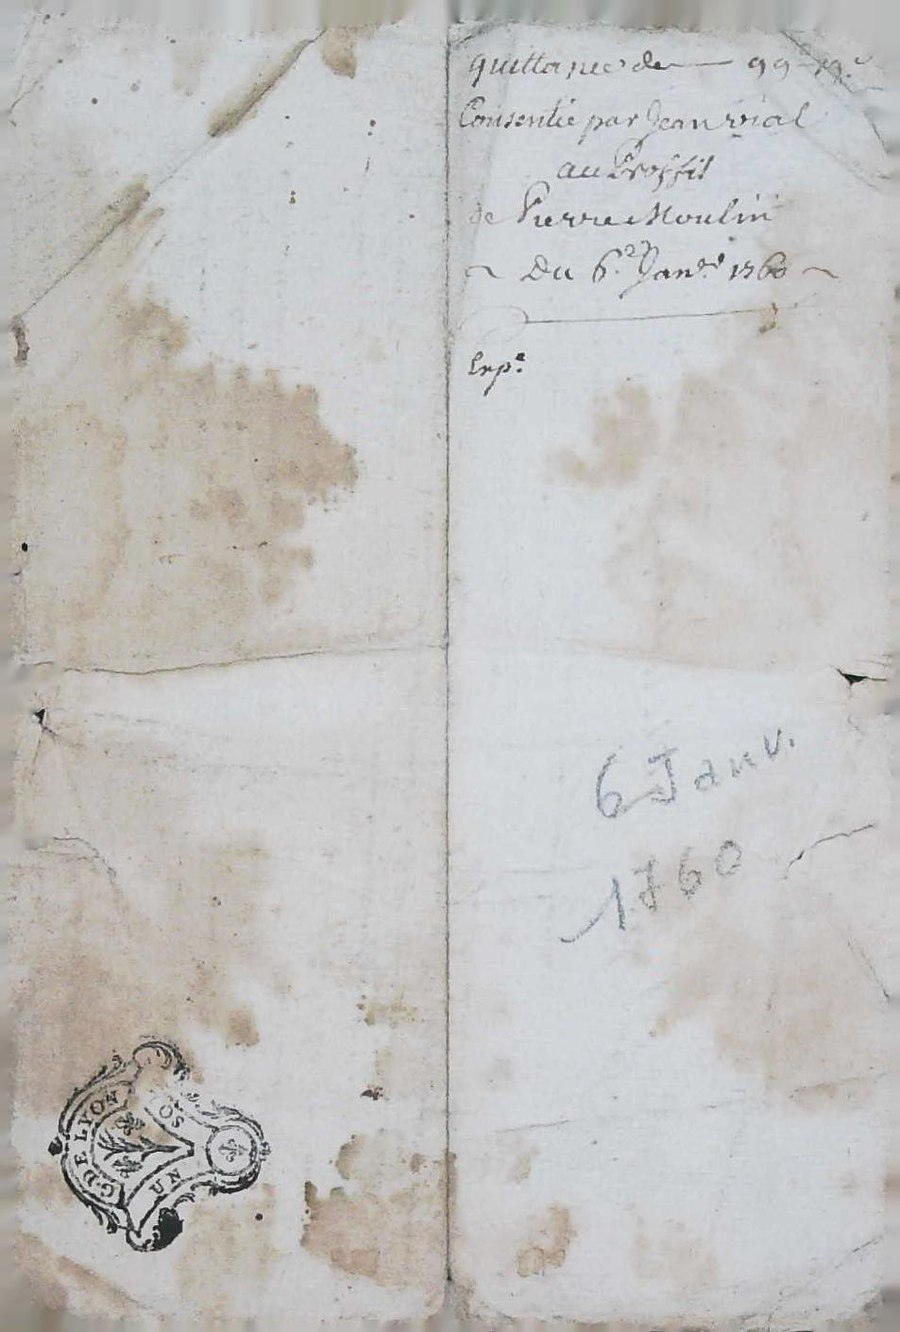 quittance de — 99# 19s
Consentie par Jean vial
au Proffit
de Pierre Moulin
Du 6e Janer 1760
Exp:e
6 Janv.
1760
G. DE LYON
UN SOS